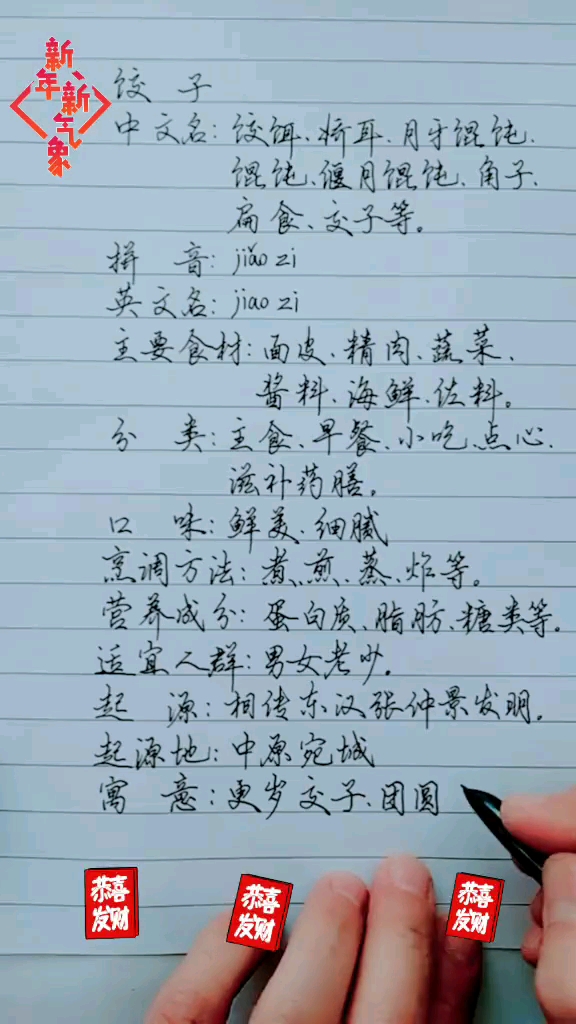 新年、新气象
饺 子
中文名：饺饵、娇耳、月牙馄饨、
馄饨、偃月馄饨、角子、
扁食、交子等。
拼 音：jiǎo zi
英文名：jiao zi
主要食材：面皮、精肉、蔬菜、
酱料、海鲜、佐料。
分 类：主食、早餐、小吃、点心、
滋补药膳。
口 味：鲜美、细腻
烹调方法：煮、煎、蒸、炸等。
营养成分：蛋白质、脂肪、糖类等。
适宜人群：男女老少。
起 源：相传东汉张仲景发明。
起源地：中原宛城
寓 意：更岁交子、团圆
恭喜
发财
恭喜
发财
恭喜
发财